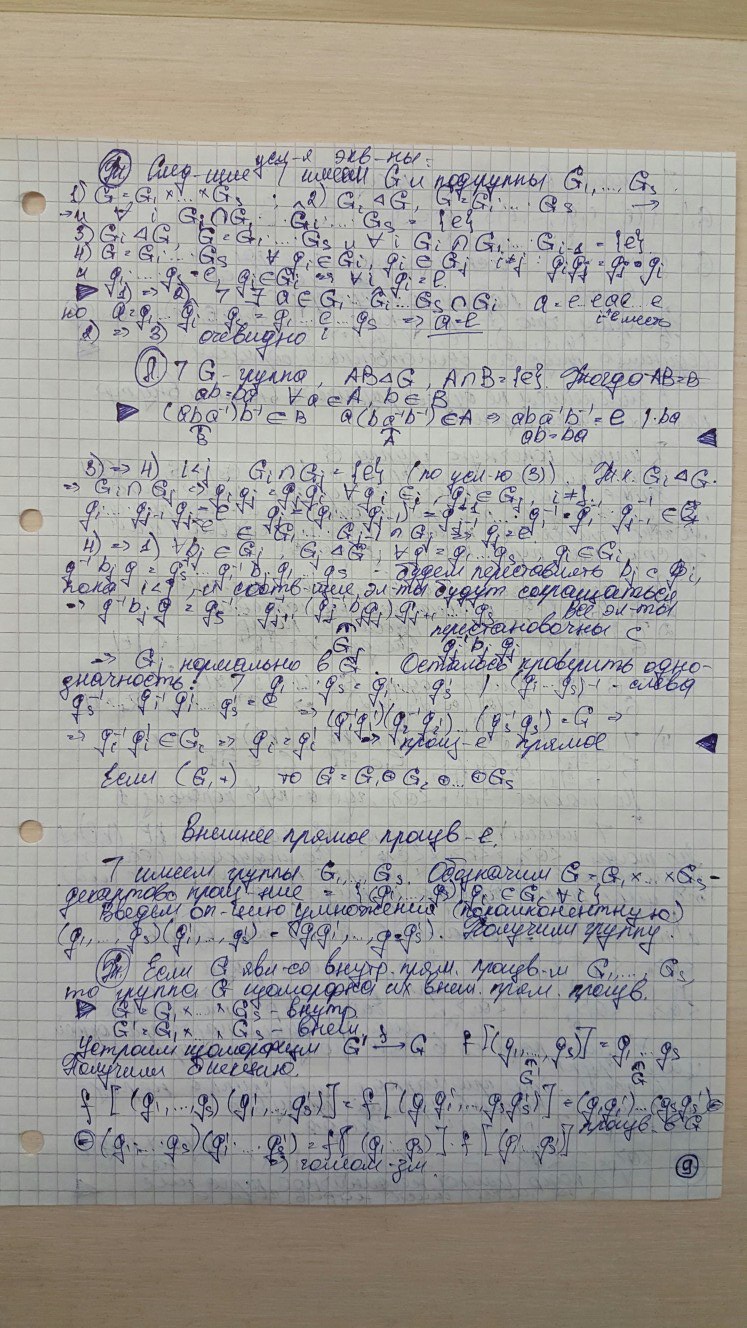 (Т) След-щие усл-я экв-ны:
имеем G и подгруппы G₁,…, Gₛ.
1) G = G₁ × … × Gₛ ; 2) Gᵢ ⊲ G, G = G₁ … Gₛ →
→ и ∀ i Gᵢ ∩ G₁ … Ĝᵢ … Gₛ = {e}
3) Gᵢ ⊲ G, G = G₁ … Gₛ, ∀ i Gᵢ ∩ G₁ … Gᵢ₋₁ = {e}
4) G = G₁ … Gₛ ∀ gᵢ ∈ Gᵢ, gⱼ ∈ Gⱼ i ≠ j : gᵢgⱼ = gⱼ · gᵢ
и g₁ … gₛ = e, gᵢ ∈ Gᵢ ⇒ ∀ i gᵢ = e.
▶ 1) ⇒ 2) ] a ∈ G₁ … Ĝᵢ … Gₛ ∩ Gᵢ a = e … e a e … e
i-е место
но a = g₁ … gᵢ … gₛ = g₁ … e … gₛ ⇒ a = e
2) ⇒ 3) очевидно
(Л) ] G - группа, A,B ⊲ G, A ∩ B = {e}. Тогда
ab = ba ∀ a ∈ A, b ∈ B
▶ (aba⁻¹)b⁻¹ ∈ B a(ba⁻¹b⁻¹) ∈ A ⇒ aba⁻¹b⁻¹ = e | · ba
B A ab = ba ◀
3) ⇒ 4) i < j, Gᵢ ∩ Gⱼ = {e} (по усл-ю (3)). Т.к. Gᵢ ⊲ G.
⇒ Gᵢ ∩ Gⱼ ⇒ gᵢgⱼ = gⱼgᵢ ∀ gᵢ ∈ Gᵢ, gⱼ ∈ Gⱼ, i ≠ j.
g₁ … gⱼ₋₁ gⱼ = e gⱼ = (g₁ … gⱼ₋₁)⁻¹ = gⱼ₋₁⁻¹ … g₁⁻¹ = g₁⁻¹ … gⱼ₋₁⁻¹ ∈
∈ G₁ … Gⱼ₋₁ ∩ Gⱼ ⇒ gⱼ = e
4) ⇒ 1) ∀ bⱼ ∈ Gⱼ, Gⱼ ⊲ G, ∀ g = g₁ … gₛ, gᵢ ∈ Gᵢ,
g⁻¹ bⱼ g = gₛ⁻¹ … g₁⁻¹ bⱼ g₁ … gₛ - будем переставлять bⱼ с gᵢ,
пока i < j, и соотв-щие эл-ты будут сокращаться
⇒ g⁻¹ bⱼ g = gₛ⁻¹ … gⱼ₊₁⁻¹ (gⱼ⁻¹ bⱼ gⱼ) gⱼ₊₁ … gₛ все эл-ты
Gⱼ перестановочны с
gⱼ⁻¹ bⱼ gⱼ
⇒ Gⱼ нормально в G. Осталось проверить одно-
значность: ] g₁ … gₛ = g₁' … gₛ' | · (g₁ … gₛ)⁻¹ - слева
gₛ⁻¹ … g₁⁻¹ g₁' … gₛ' = e
⇒ (g₁⁻¹g₁')(g₂⁻¹g₂') … (gₛ⁻¹gₛ') = e ⇒
⇒ gᵢ⁻¹gᵢ' ∈ Gᵢ ⇒ gᵢ = gᵢ' ⇒ произ-е прямое ◀
Если (G, +), то G = G₁ ⊕ G₂ ⊕ … ⊕ Gₛ
Внешнее прямое произв-е.
] имеем группы G₁, …, Gₛ. Обозначим G = G₁ × … × Gₛ -
декартово произ-ние = {(g₁, …, gₛ) | gᵢ ∈ Gᵢ ∀ i}
Введем оп-цию умножения (покомпонентную)
(g₁, …, gₛ)(g₁', …, gₛ') = (g₁g₁', …, gₛgₛ'). Получили группу.
(Т) Если G явл-ся внутр. прям. произв-м G₁, …, Gₛ,
то группа G изоморфна их внеш. прям. произв.
▶ G = G₁ × … × Gₛ - внутр
G' = G₁ × … × Gₛ - внеш
Устроим изоморфизм G' →f G f[(g₁, …, gₛ)] = g₁ … gₛ
Получили биекцию. G' G
f[(g₁, …, gₛ)(g₁', …, gₛ')] = f[(g₁g₁', …, gₛgₛ')] = (g₁g₁') … (gₛgₛ') =
произв. в G
= (g₁ … gₛ)(g₁' … gₛ') = f[(g₁ … gₛ)] · f[(g₁' … gₛ')]
⇒ гомом-зм.
9